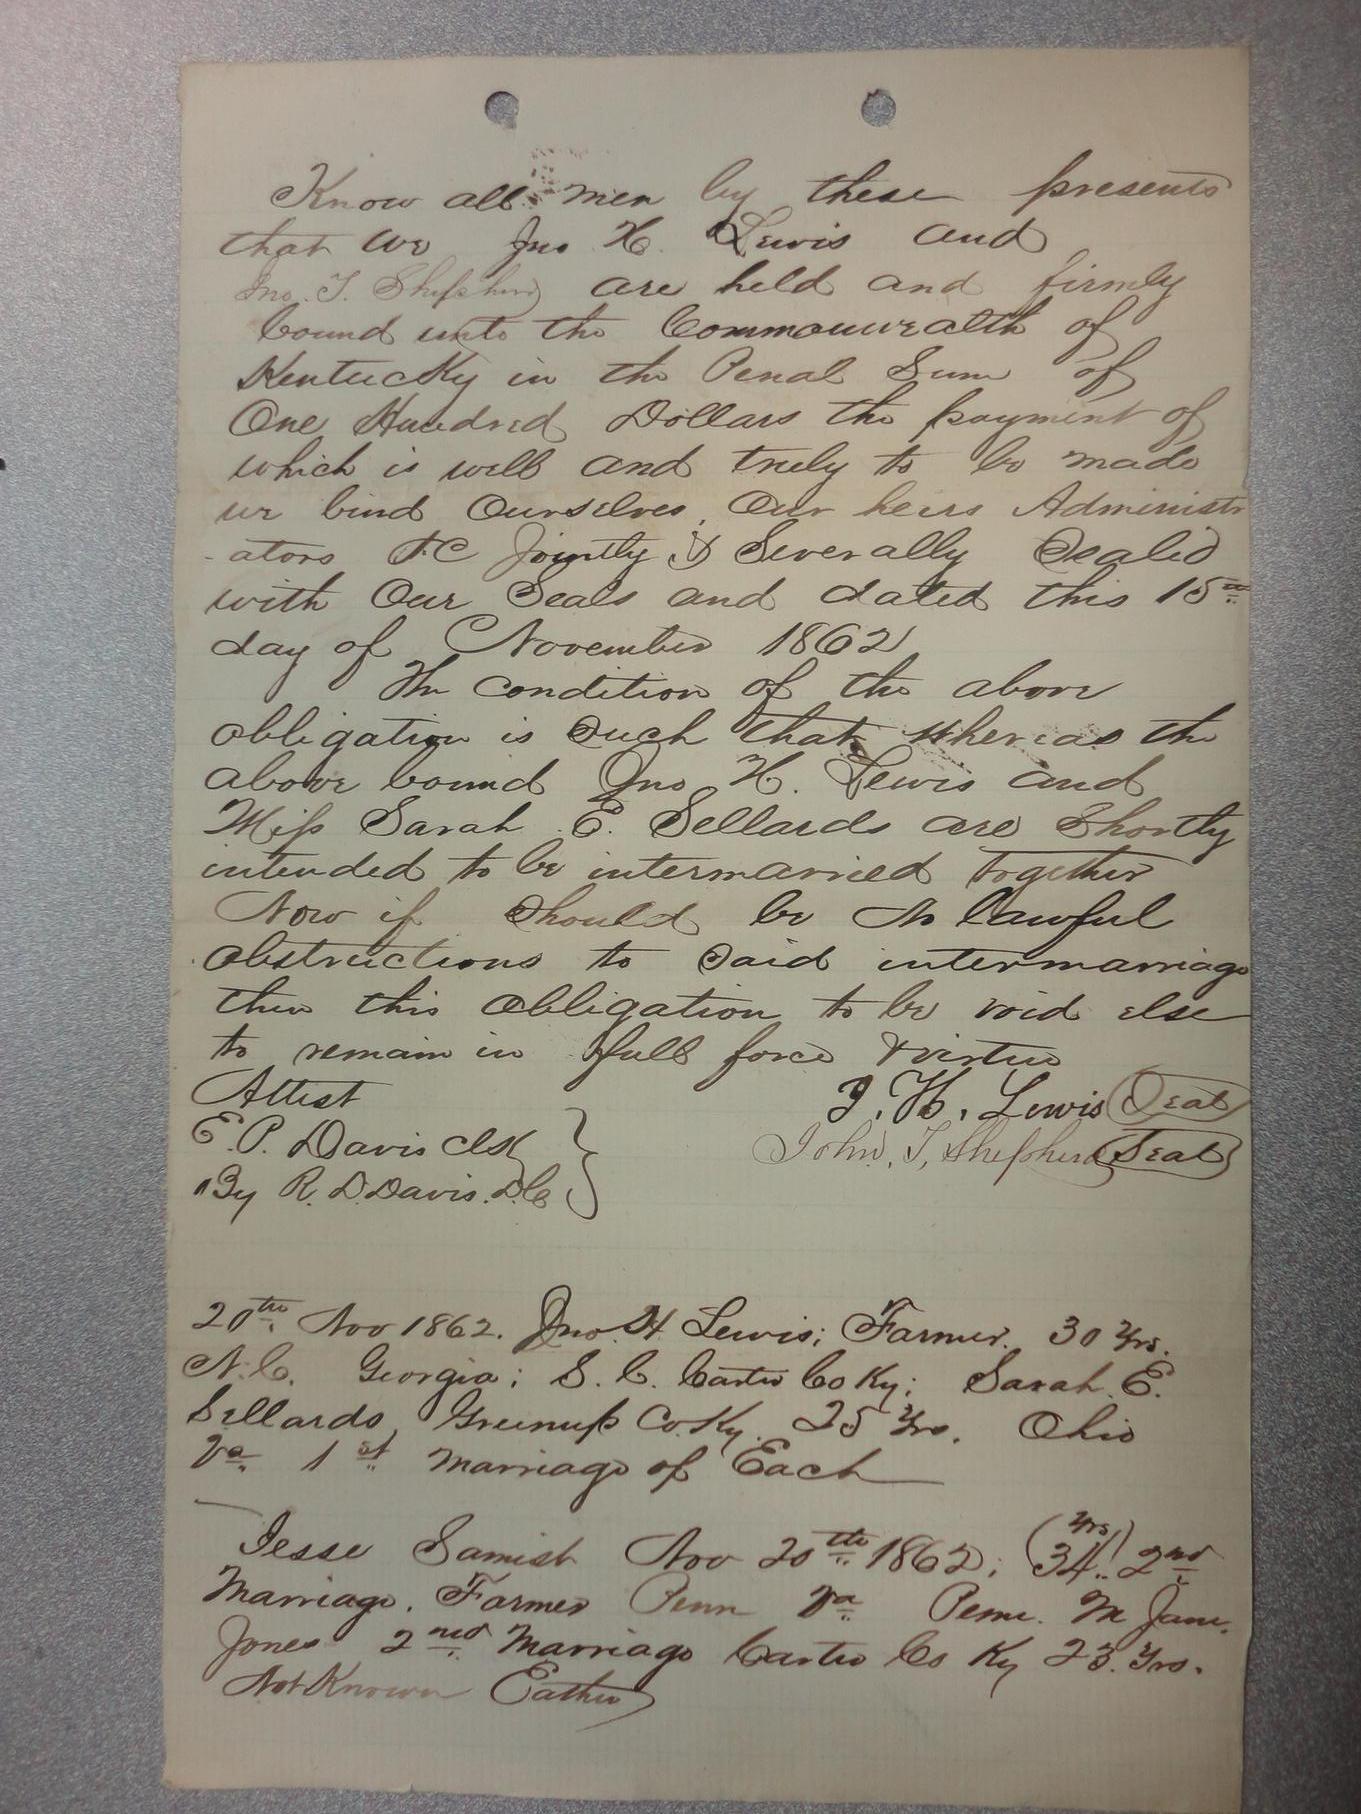 Know all men by these presents
that we Jno H. Lewis and
Jno. T. Shepherd are held and firmly
bound unto the Commonwealth of
Kentucky in the Penal Sum of
One Hundred Dollars the payment of
which is well and truly to be made
we bind Ourselves, Our heirs Administr
-ators &C Jointly & Severally Sealed
with Our Seals and dated this 15th
day of November 1862
The condition of the above
obligation is Such that whereas the
above bound Jno H. Lewis and
Miss Sarah E. Sellards are Shortly
intended to be intermarried together
Now if Should be no lawful
obstructions to Said intermarriage
then this obligation to be void else
to remain in full force & virtue
Attest
J. H. Lewis Seal
E. P. Davis Clk
John. T, Shepherd Seal
By R. D. Davis. D.C
20th Nov 1862. Jno. H Lewis; Farmer. 30 Yrs.
N. C. Georgia; S. C. Carter Co Ky; Sarah E.
Sellards, Greenup Co. Ky. 25 Yrs. Ohio
Va 1st Marriage of Each
Jesse Nov 20th 1862; (34 yrs) 2nd
Marriage. Farmer Penn Va Penn. M Jane.
Jones 2nd Marriage Carter Co Ky 23. Yrs.
Not Known Eather